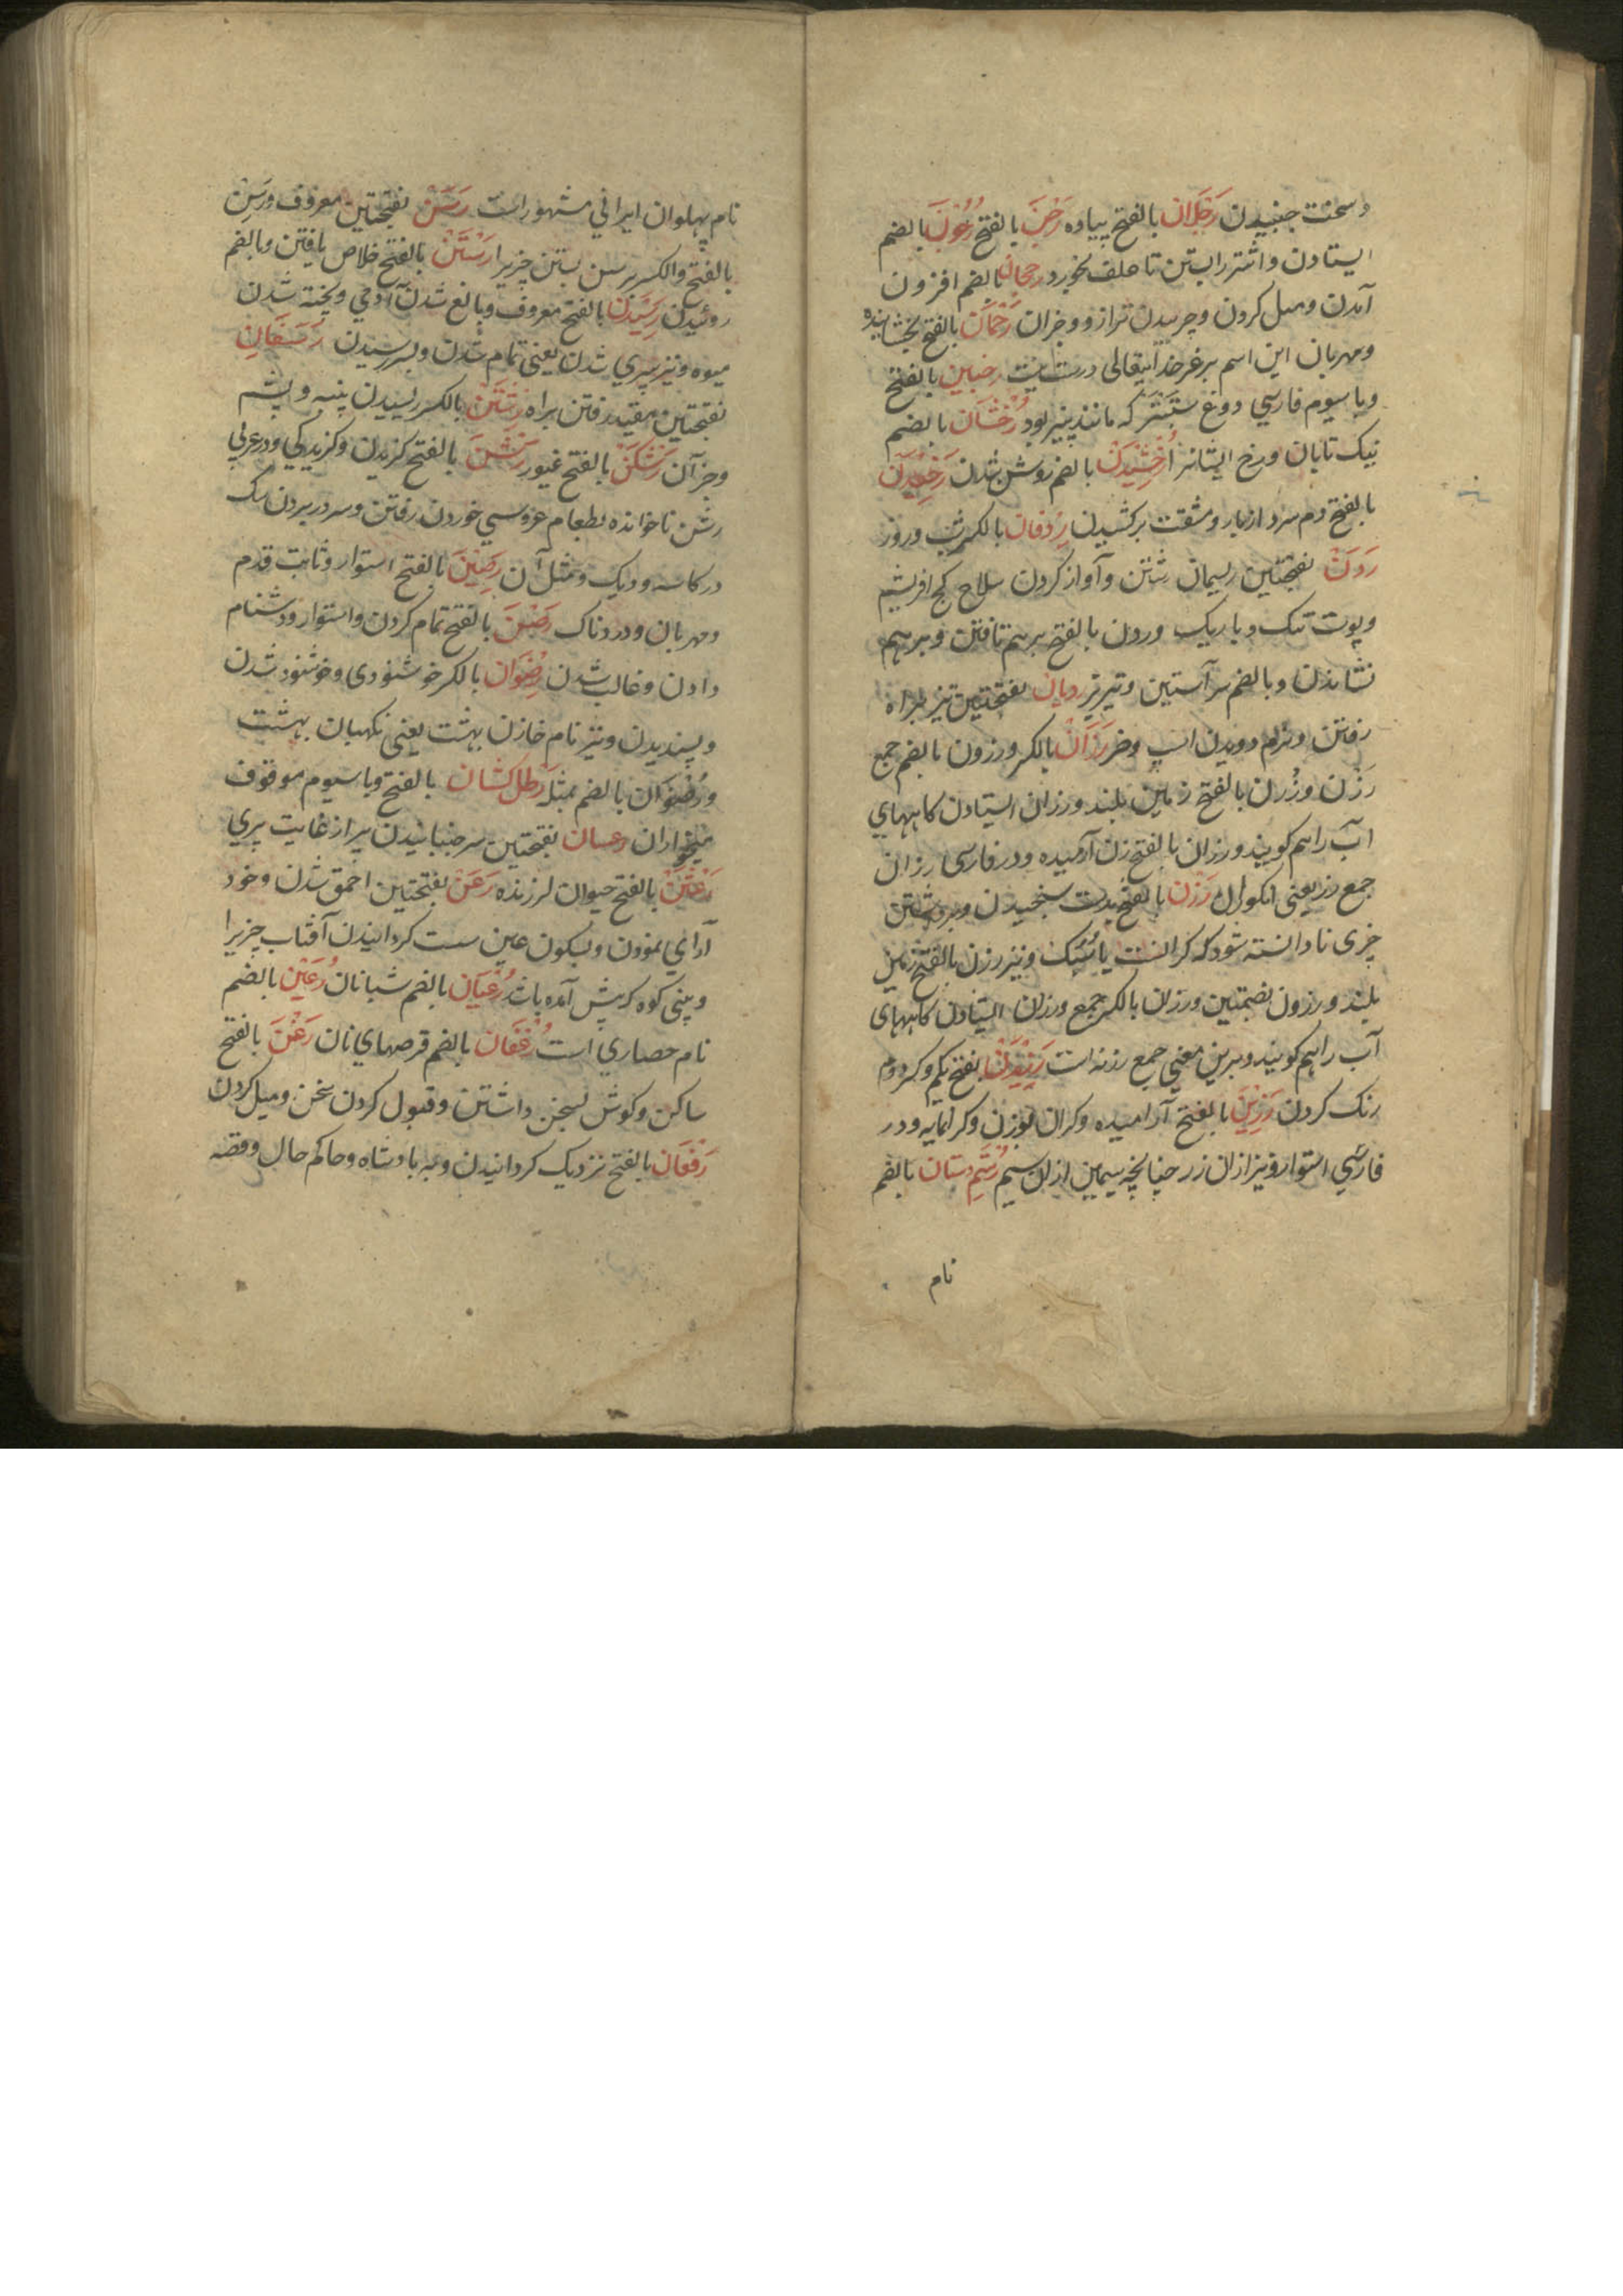 وسخت جنبیدن رَجْلَان بالفتح پیاده رَجْنَ بالفتح رُجُوْنَ بالضم
ایستادن واشتر رابستن تا علف بخورد رجحان بالضم افزون
آمدن ومیل کردن وچربیدن ترازو وجزان رَحْمَان بالفتح بخشاینده
ومهربان این اسم بر غیر خدایتعالی درست نیست رخبین بالفتح
وباسیوم فارسي دوغ ستبتر که مانند پنیر بود رُخْشَان بالضم
نیک تابان ورخ ایشانرا رُخْشِیْدَنْ بالضم روشن شدن رَخِیْدَن
بالفتح دم سرد از بار ومشقت برکشیدن رِدْفَان بالکسر شب وروز
رَدَنْ بفتحتین ریسمان رشتن وآواز کردن سلاح کج افریشم
وپوست تنک وباریک وردن بالفتح برهم تافتن وبرهم
نشاندن وبالضم سر آستین وتیریز ردیان بفتحتین تیز براه
رفتن ونرم دویدن اسپ وخر رَزَانْ بالکسر ورزون بالضم جمع
رَزْن ورُزن بالفتح زمین بلند ورزان ایستادن کاههای
آب راهم کویند ورزان بالفتح زن آرمیده ودر فارسی رزان
جمع رز یعنی انکورال رَزْن بالفتح بدست سنجیدن وبرداشتن
چزی تا دانسته شود که کرانست یا سُبک ونیز رزن بالفتح زمین
بلند ورزون بضمتین ورزان بالکسر جمع ورزان ایستادن کاههای
آب راهم کویند وبرین معنی جمع رزنه است رَزِیْدَنْ بفتح یکم وکسر دوم
رنک کردن رَزِیْنَ بالفتح آرامیده وکران بوزن وکرانمایه ودر
فارسي استوار ونیز از ان زر چنانچه سیمین از ان سیم رُسْتَم دستان بالضم
نام
نام پهلوان ایراني مشهور است رَسَنْ بفتحتین معروف ورَسن
بالفتح والکسر برسن بستن چزیرا رَسْتَنْ بالفتح خلاص یافتن وبالضم
روئیدن رَسِیْدَن بالفتح معروف وبالغ شدن آدمي وپخته شدن
میوه ونیز سپري شدن یعنی تمام شدن وبسر رسیدن رَسَفَان
بفتحتین مقید رفتن براه رِشْتَنْ بالکسر ریسیدن پنبه وپشم
وجزآن رَشْکَنْ بالفتح غیور رَشْنَ بالفتح کزیدن وکزیدکي ودر عربي
رشن ناخوانده بطعام عروسي خوردن رفتن وسر در بردن سک
در کاسه ودیک ومثل آن رَصِیْن بالفتح استوار وثابت قدم
ومهربان ودردناک رَصْنَ بالفتح تمام کردن واستوار ودشنام
دادن وغالب شدن رِضْوَان بالکسر خوشنودی وخوشنود شدن
وپسندیدن ونیز نام خازن بهشت یعنی نکهبان بهشت
ورُضْوَان بالضم مثله رَطل کشان بالفتح وباسیوم موقوف
میخواران رعسان بفتحتین سر جنبانیدن پیر از غایت پیري
رَعْشَنْ بالفتح حیوان لرزنده رَعَنْ بفتحتین احمق شدن وخود
آراي نمودن وبسکون عین سست کردانیدن آفتاب چزیرا
وبینی کوه که پیش آمده باشد رُعْیَان بالضم شبانان رُعَیْن بالضم
نام حصاري است رُغْفَان بالضم قرصهاي نان رَغْنَ بالفتح
ساکن وکوش بسخن داشتن وقبول کردن سخن ومیل کردن
رَفْعَان بالفتح نزدیک کردانیدن وبه بادشاه وحاکم حال وقصه